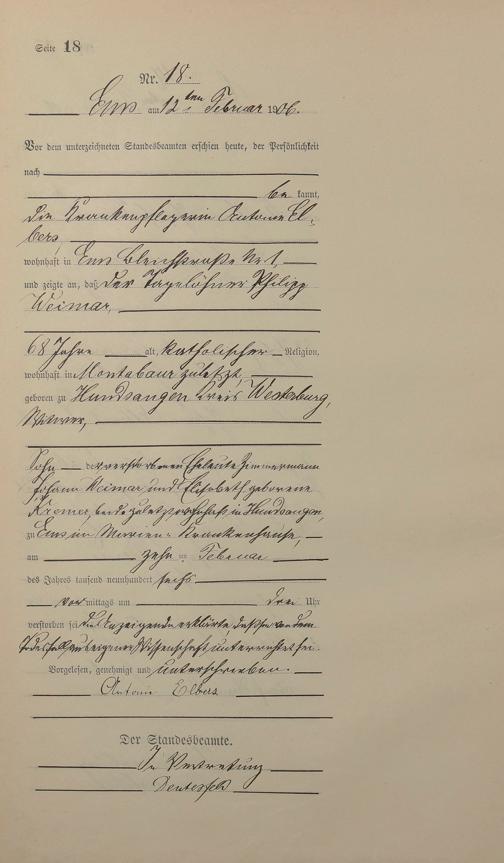 Seite 18
Nr. 18.
Ems am 12ten Februar 1906.
Vor dem unterzeichneten Standesbeamten erschien heute, der Persönlichkeit
nach
bekannt,
die Krankenpflegerin Antonie El-
bers,
wohnhaft in Ems Bleichstraße Nr. 1,
und zeigte an, daß der Tagelöhner Philipp
Weimar,
68 Jahre alt, katholischer Religion,
wohnhaft in Montabaur zuletzt,
geboren zu Hundsangen Kreis Westerburg,
Witwer,
Sohn der verstorbenen Eheleute Zimmermann
Johann Weimar und Elisabeth geborene
Kremer, beide zuletzt wohnhaft in Hundsangen,
zu Ems im Marien-Krankenhause,
am zehn ten Februar
des Jahres tausend neunhundert sechs
Vormittags um drei Uhr
verstorben sei die Anzeigende erklärte, daß sie von dem
Todesfall aus eigener Wissenschaft unterrichtet sei.
Vorgelesen, genehmigt und unterschrieben.
Antonie Elbers
Der Standesbeamte.
In Vertretung